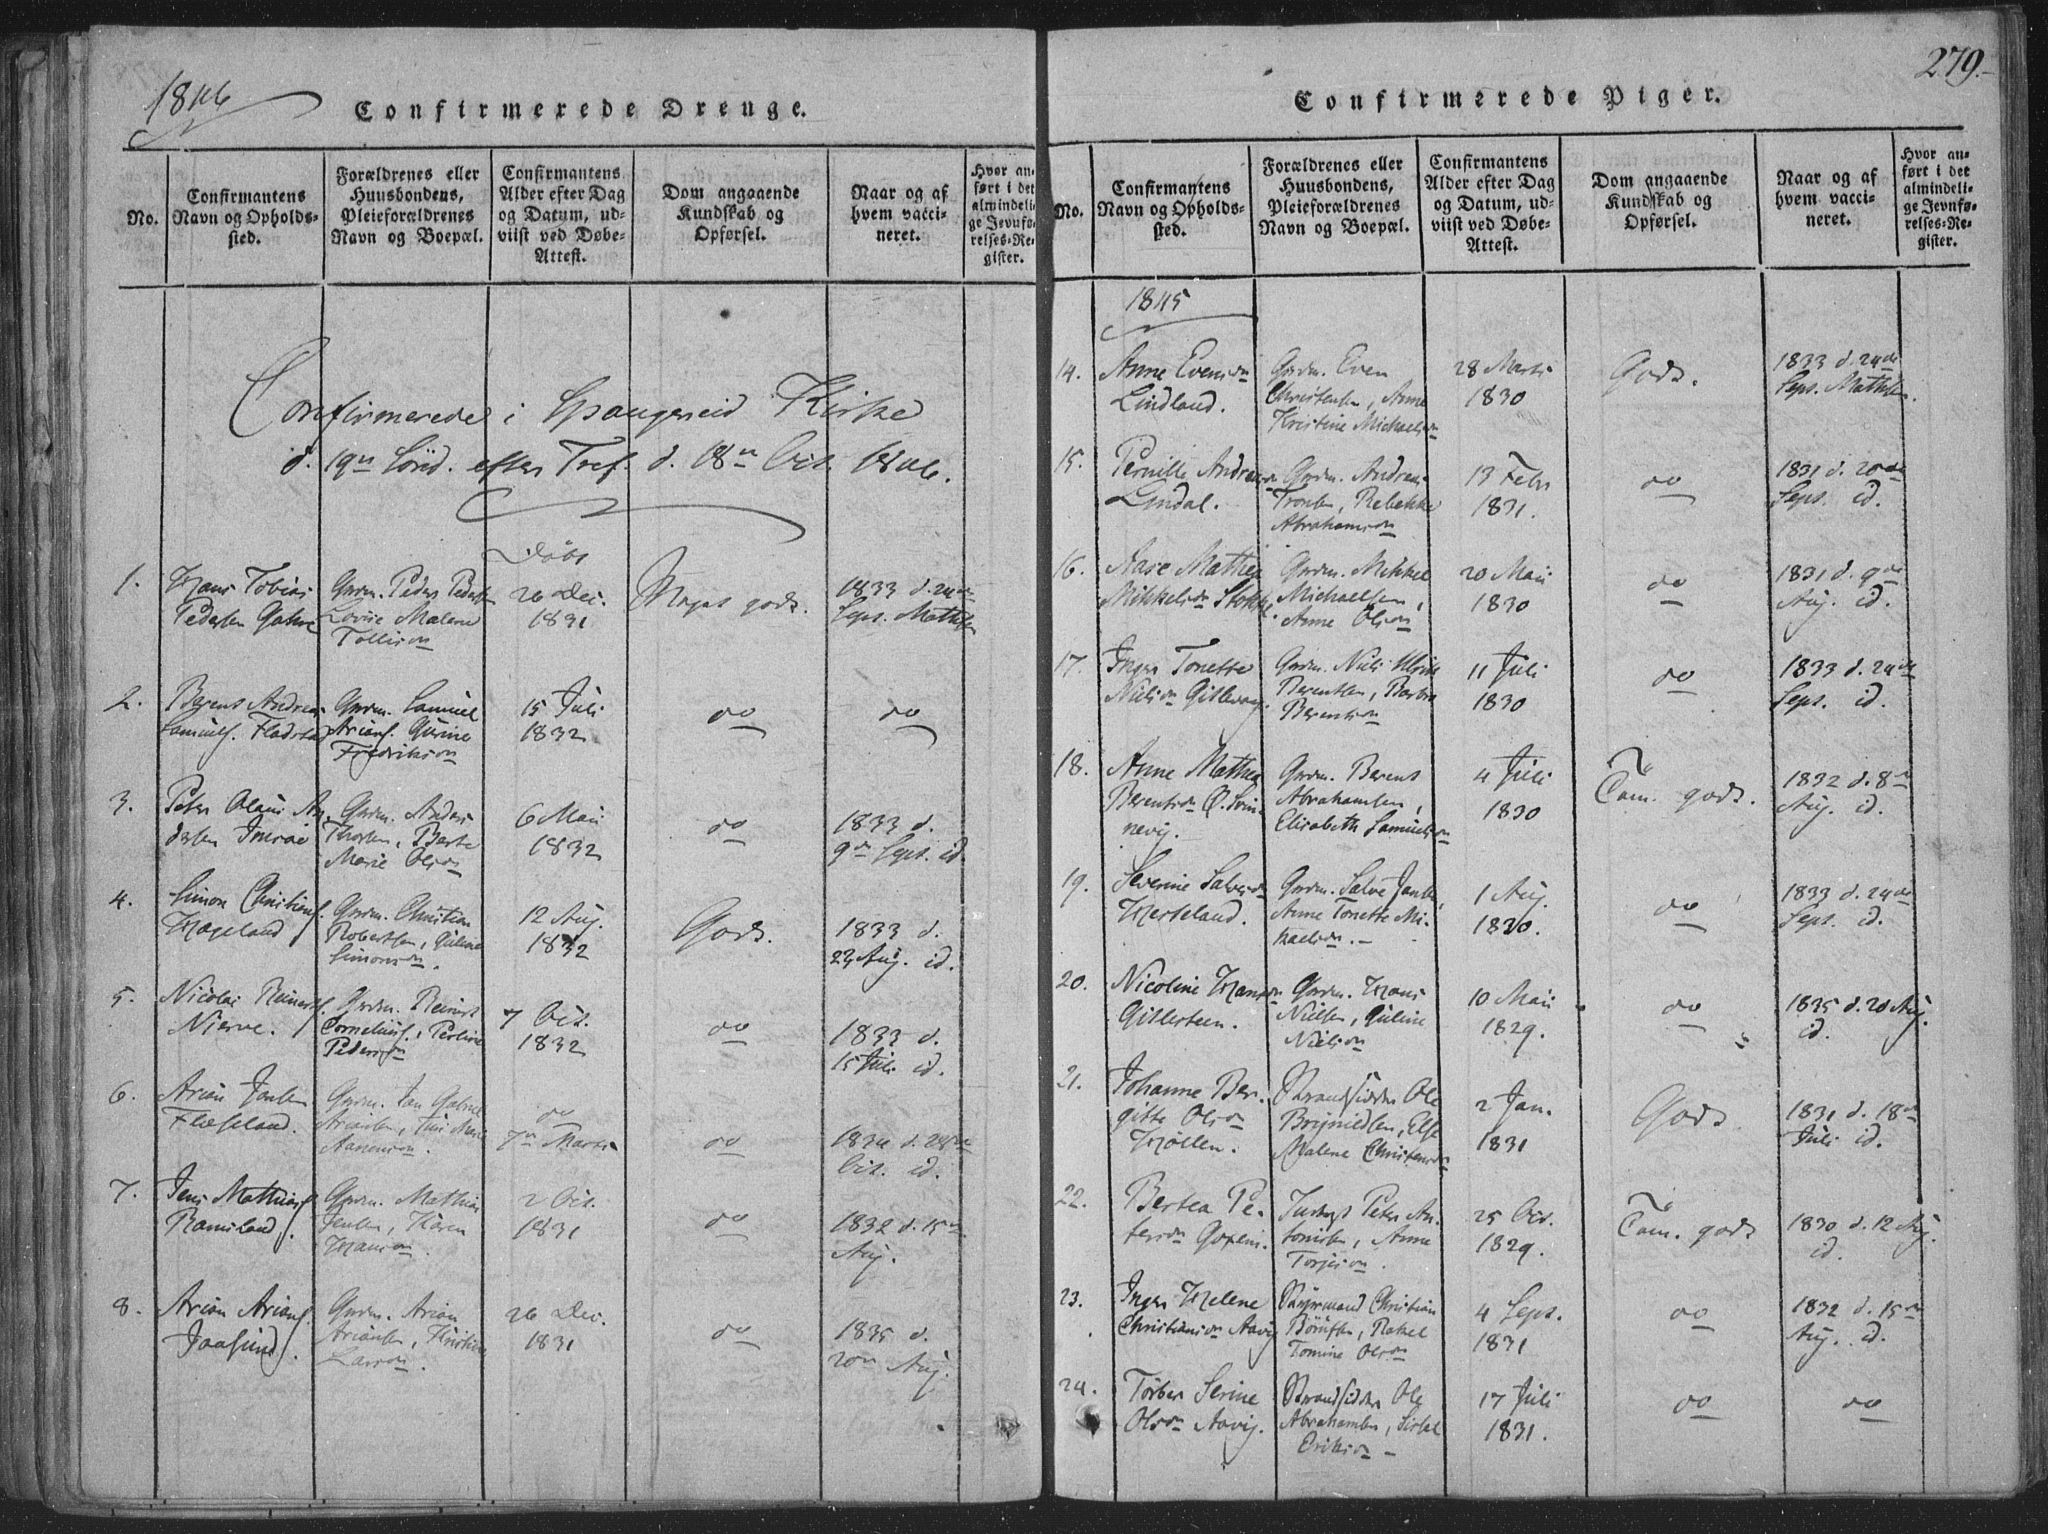 1846
Confirmerede Drenge.
No.
Confirmantens
Navn og Opholds-
sted.
Forældrenes eller
Huusbondens,
Pleieforældrenes
Navn og Boepæl.
Confirmantens
Alder efter Dag
og Datum, ud-
viist ved Døbe-
Attest.
Dom angaaende
Kundskab og
Opførsel.
Naar og af
hvem vacci-
neret.
Hvor an-
ført i det
almindeli-
ge Jevnfø-
relses-Re-
gister.
Confirmerede i Spangereid Kirke
d. 19n Sönd. efter Tref. d. 18n Oct. 1846.
Döbt
1.
Hans Tobias
Pedersen Gahre
Grdm. Peder Peders
Lovise Malene
Tollisdn
26 Dec.
1831
Meget godt.
1833 d. 24de
Sept. Mathisen
2.
Berent Andreas
Samuels. Fladstad
Grdm. Samuel
Arians. Gurine
Fredriksdn
15 Juli
1832
oo
oo
3.
Peter Olaus An-
dersen
Grdm. Anders
Thorsen, Berte
Marie Olsdn
6 Mai
1832
oo
1833 d.
9de Sept. id.
4.
Simon Christians.
Hageland
Grdm. Christian
Robertsen, Guline
Simonsdn.
12 Aug.
1832
Godt.
1833 d.
23 Aug. id.
5.
Nicolai Reinerts.
Njerve.
Grdm. Reinert
Cornelius.,
Pedersdn
7 Oct.
1832
oo
1833 d.
15 Juli id.
6.
Arian Jansen
Fladeland.
Grdm. Jan Gabriel
Ariansen, Siri Marie
Aanensdn.
oo
7n Marts
oo
1834 d. 24de
Oct. id.
7.
Jens Mathias.
Ramsland.
Grdm. Mathias
Jensen, Karen
Hansdn.
2 Oct.
1831
oo
1832 d. 15n
Aug.
8.
Arian Arians.
Jaasund.
Grdm. Arian
Ariansen,
Larsdn.
26 Dec.
1831
oo
1835 d.
20n Aug.
279.
Confirmerede Piger.
No.
Confirmantens
Navn og Opholds-
sted.
Forældrenes eller
Huusbondens,
Pleieforældrenes
Navn og Boepæl.
Confirmantens
Alder efter Dag
og Datum, ud-
viist ved Døbe-
Attest.
Dom angaaende
Kundskab og
Opførsel.
Naar og af
hvem vacci-
neret.
Hvor an-
ført i det
almindeli-
ge Jevnfø-
relses-Re-
gister.
1845
14.
Anne Evensdn
Lindland.
Grdm. Even
Christensen, Anne
Kristine Michaelsdn
28 Marts
1830
Godt.
1833 d. 24de
Sept. Mathisen.
15.
Pernille Andreasdn
Lindal.
Grdm. Andreas
Tronsen, Rebekke
Abrahamsdn
13 Febr
1831.
oo
1831 d. 20de
Sept. id.
16.
Aase Mathea
Mikkelsdn Stokke.
Grdm. Mikkel
Michaelsen,
Anne Olsdn
20 Mai
1830
oo
1831 d. 9de
Aug. id.
17.
Inger Tonette
Nielsdn Gitlevaag.
Grdm. Niels Ulrik
Berentsen, Barbro
Berentsdn
11 Juli
1830
oo
1833 d. 24de
Sept. id.
18.
Anne Mathea
Berentsdn Ø. Svin-
nevig.
Grdm. Berent
Abrahamsen,
Elisabeth Samuelsdn
4 Juli
1830
Tem. godt.
1832 d. 8n
Aug. id.
19.
Severine Salvesdn
Hesteland.
Grdm. Salve Jansen,
Anne Tonette Mi-
kaelsdn. -
1 Aug.
1830.
oo
1833 d. 24de
Sept. id.
20.
Nicoline Hansdn
Gitlesteen.
Grdm. Hans
Nielsen, Guline
Nielsdn
10 Mai
1829.
oo
1835 d. 20 Aug.
id.
21.
Johanne Ber-
gitte Olsdn
Hollen.
Strandsidder Ole
Brynildsen, Else
Malene Christensdn
2 Jan.
1831
Godt
1831 d. 18n
Juli id.
22.
Bertea Pe-
tersdn
Peter An-
tonisen, Anne
Torjesdn.
25 Oct.
1829.
Tem. godt
1830 d. 12 Aug.
id.
23.
Inger Helene
Christiansdn Aavig
Styrmand Christian
Röinsen, Rakel
Tomine Olsdn
4 Sept.
1831
oo
1832 d. 15n
Aug. id.
24.
Torber Serine
Olsdn Aavig.
Strandsidder Ole
Abrahamsen, Sirkel
Eriksdn -
17 Juli
1831.
oo
oo